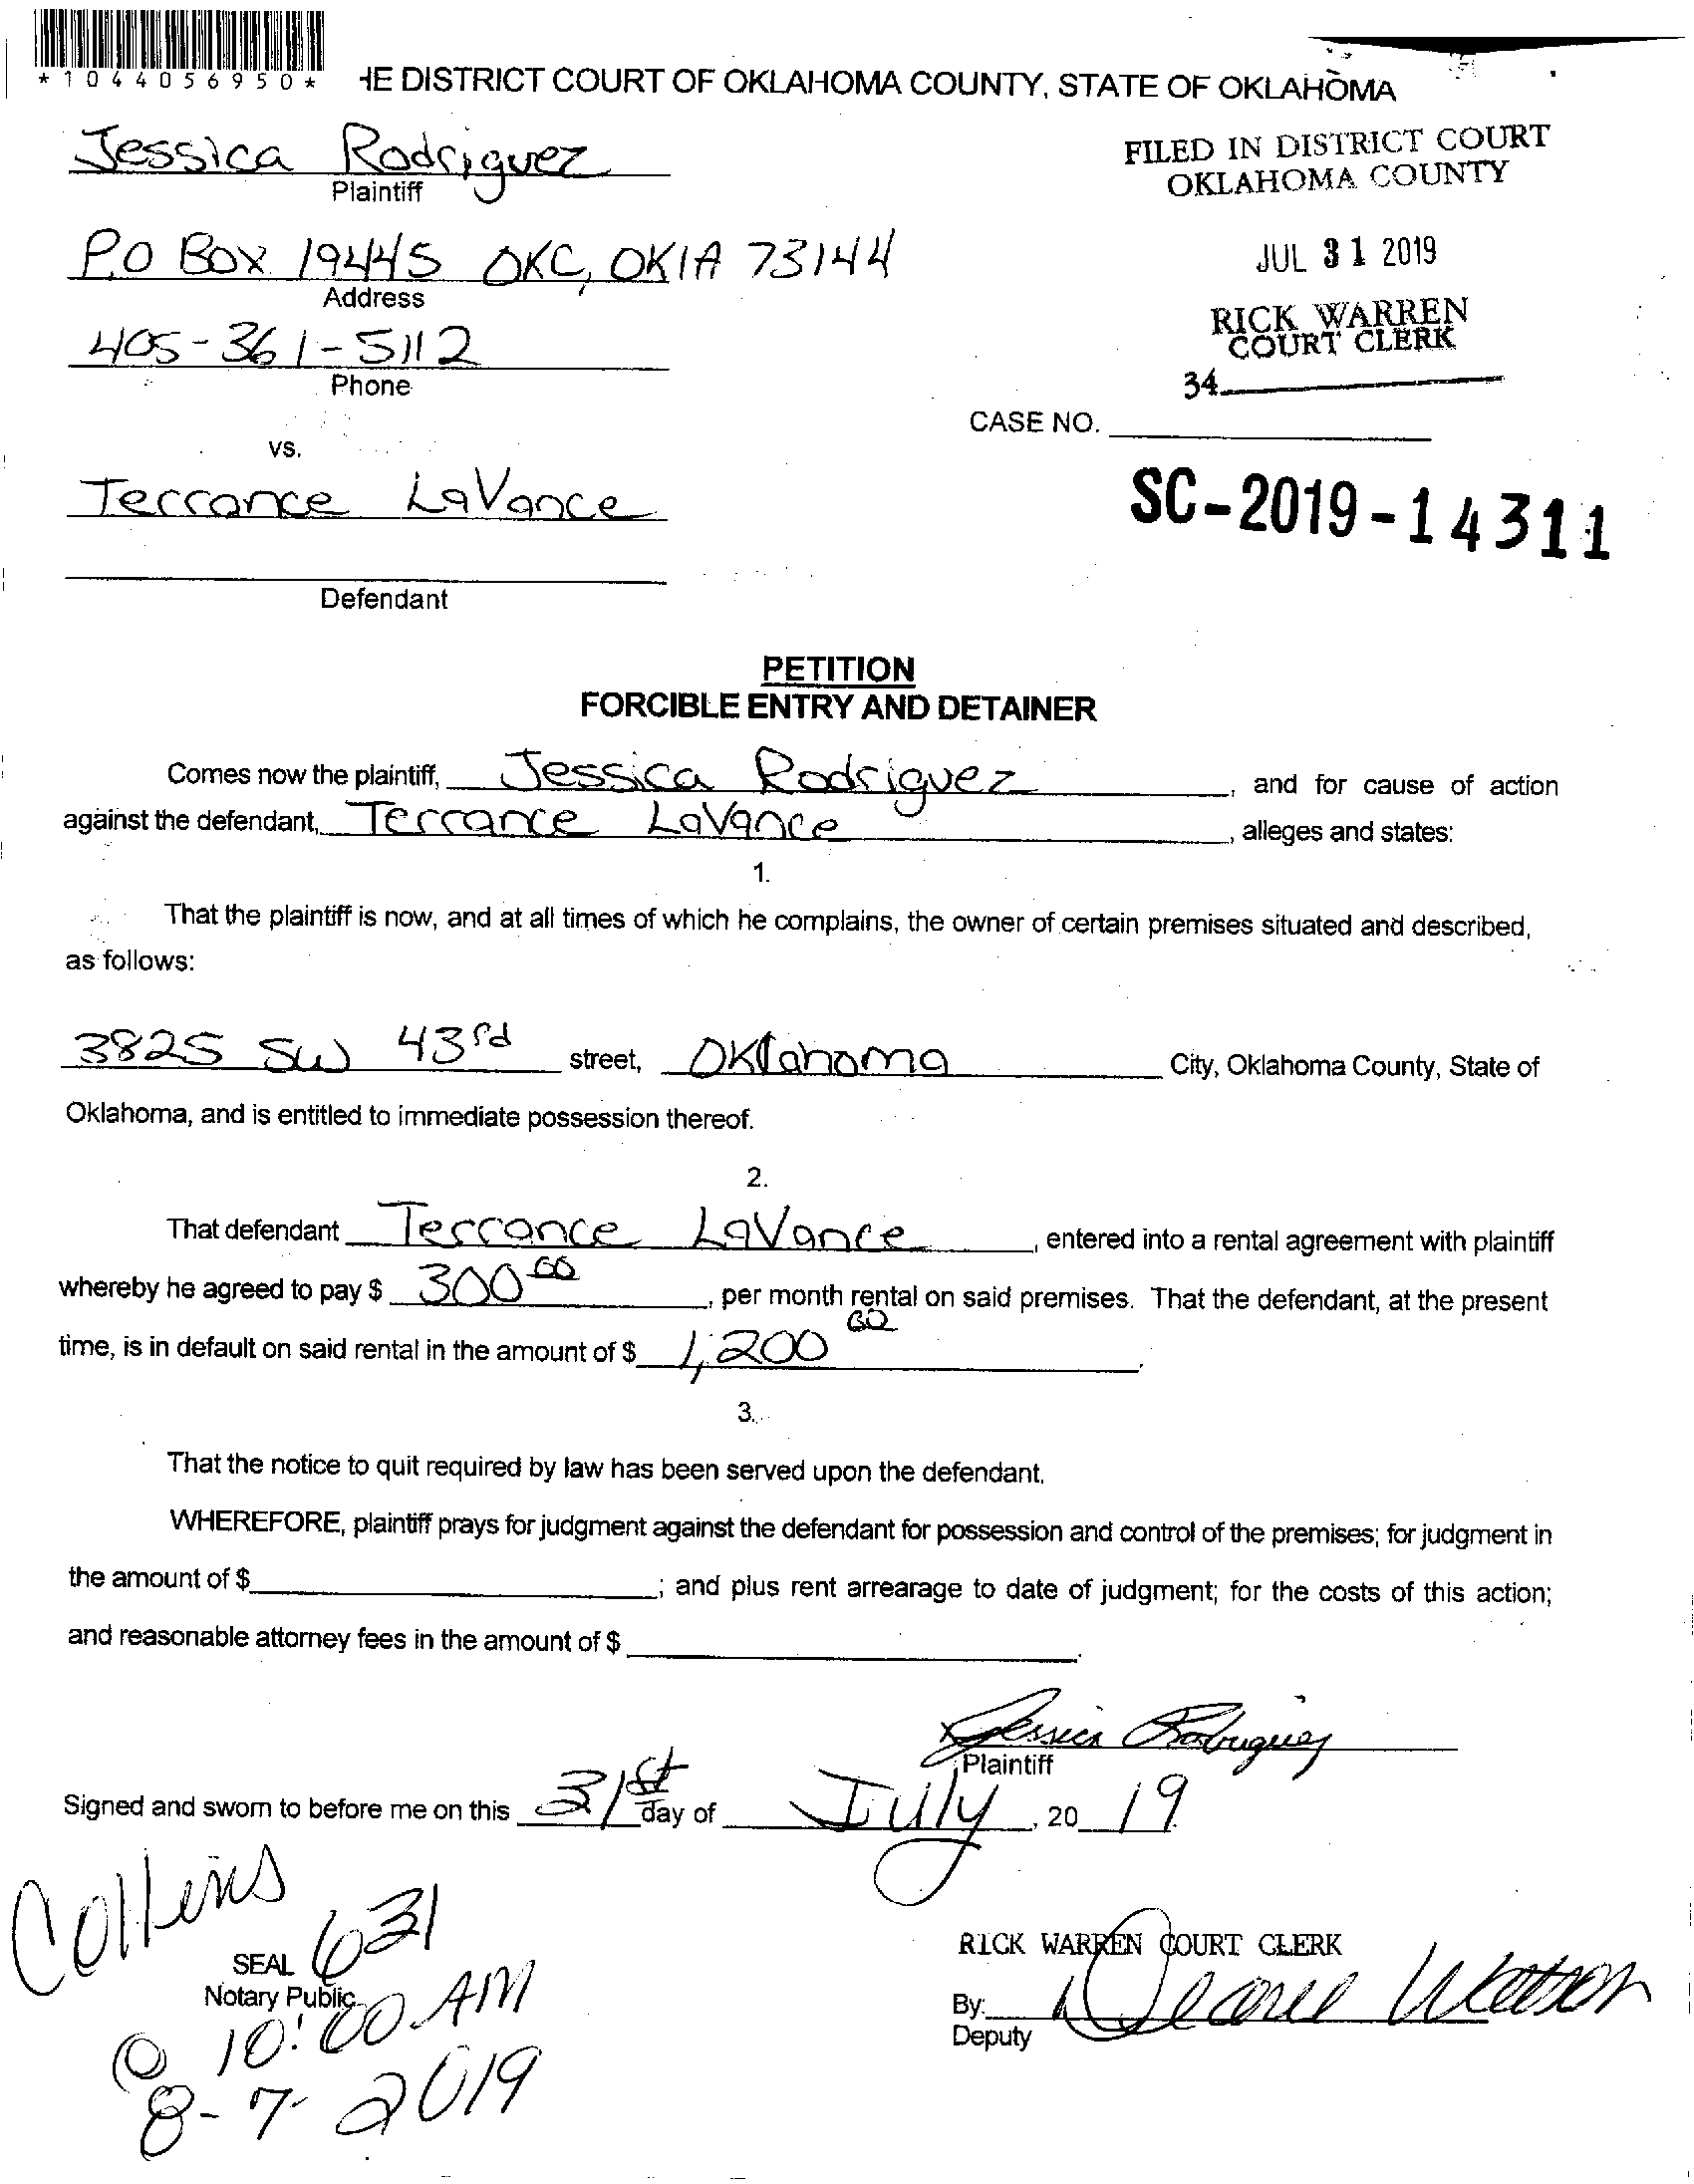 *1044056950*
HE DISTRICT COURT OF OKLAHOMA COUNTY, STATE OF OKLAHOMA
Jessica Rodriguez
Plaintiff
FILED IN DISTRICT COURT
OKLAHOMA COUNTY
P.O Box 19445 OKC, OKlA 73144
Address
JUL 31 2019
405-361-5112
Phone
RICK WARREN
COURT CLERK
34
CASE NO.
vs.
Terrance LaVance
SC-2019-14311
Defendant
PETITION
FORCIBLE ENTRY AND DETAINER
Comes now the plaintiff, Jessica Rodriguez, and for cause of action
against the defendant, Terrance LaVance, alleges and states:
1.
That the plaintiff is now, and at all times of which he complains, the owner of certain premises situated and described,
as follows:
3825 SW 43rd street, Oklahoma City, Oklahoma County, State of
Oklahoma, and is entitled to immediate possession thereof.
2.
That defendant Terrance LaVance, entered into a rental agreement with plaintiff
whereby he agreed to pay $ 300 00, per month rental on said premises. That the defendant, at the present
time, is in default on said rental in the amount of $ 1,200 00.
3.
That the notice to quit required by law has been served upon the defendant.
WHEREFORE, plaintiff prays for judgment against the defendant for possession and control of the premises; for judgment in
the amount of $; and plus rent arrearage to date of judgment; for the costs of this action;
and reasonable attorney fees in the amount of $.
Jessica Rodriguez
Plaintiff
Signed and sworn to before me on this 31st day of July, 2019.
Collins
631
SEAL
Notary Public
@ 10:00 AM
8-7-2019
RICK WARREN COURT CLERK
By: Watson
Deputy